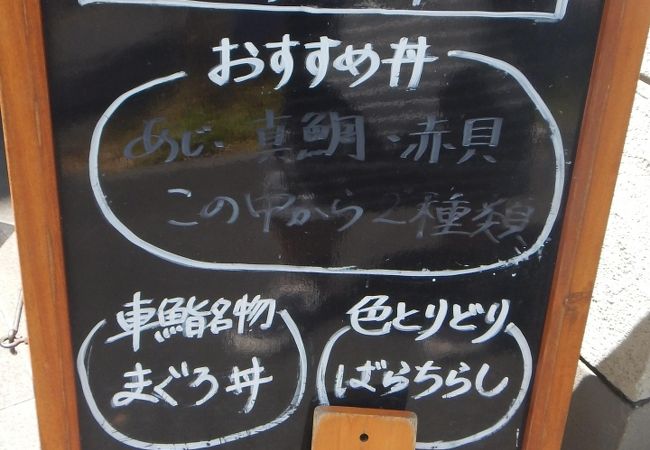 おすすめ丼
あじ・真鯛・赤貝
この中から2種類
車鮨名物
まぐろ丼
色とりどり
ばらちらし